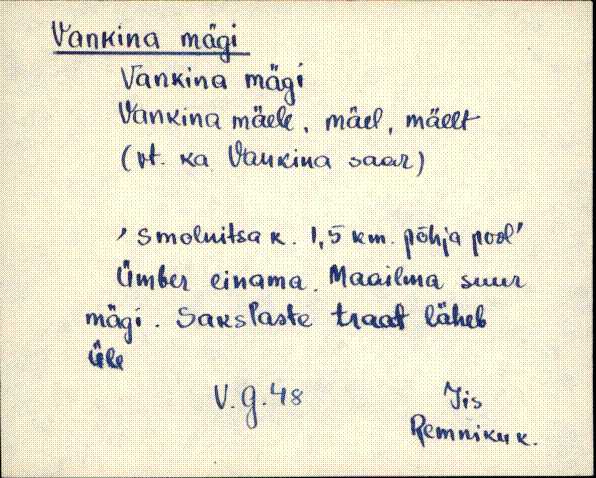 Vankina mägi
Vankina mägi
Vankina mäele, mäel, mäelt
(vt. ka Vankina saar)
'Smolnitsa k. 1,5 km. põhja pool'
Ümber einama. Maailma suur
mägi. Sakslaste traat läheb
üle
V.g.48
Jis
Remniku k.